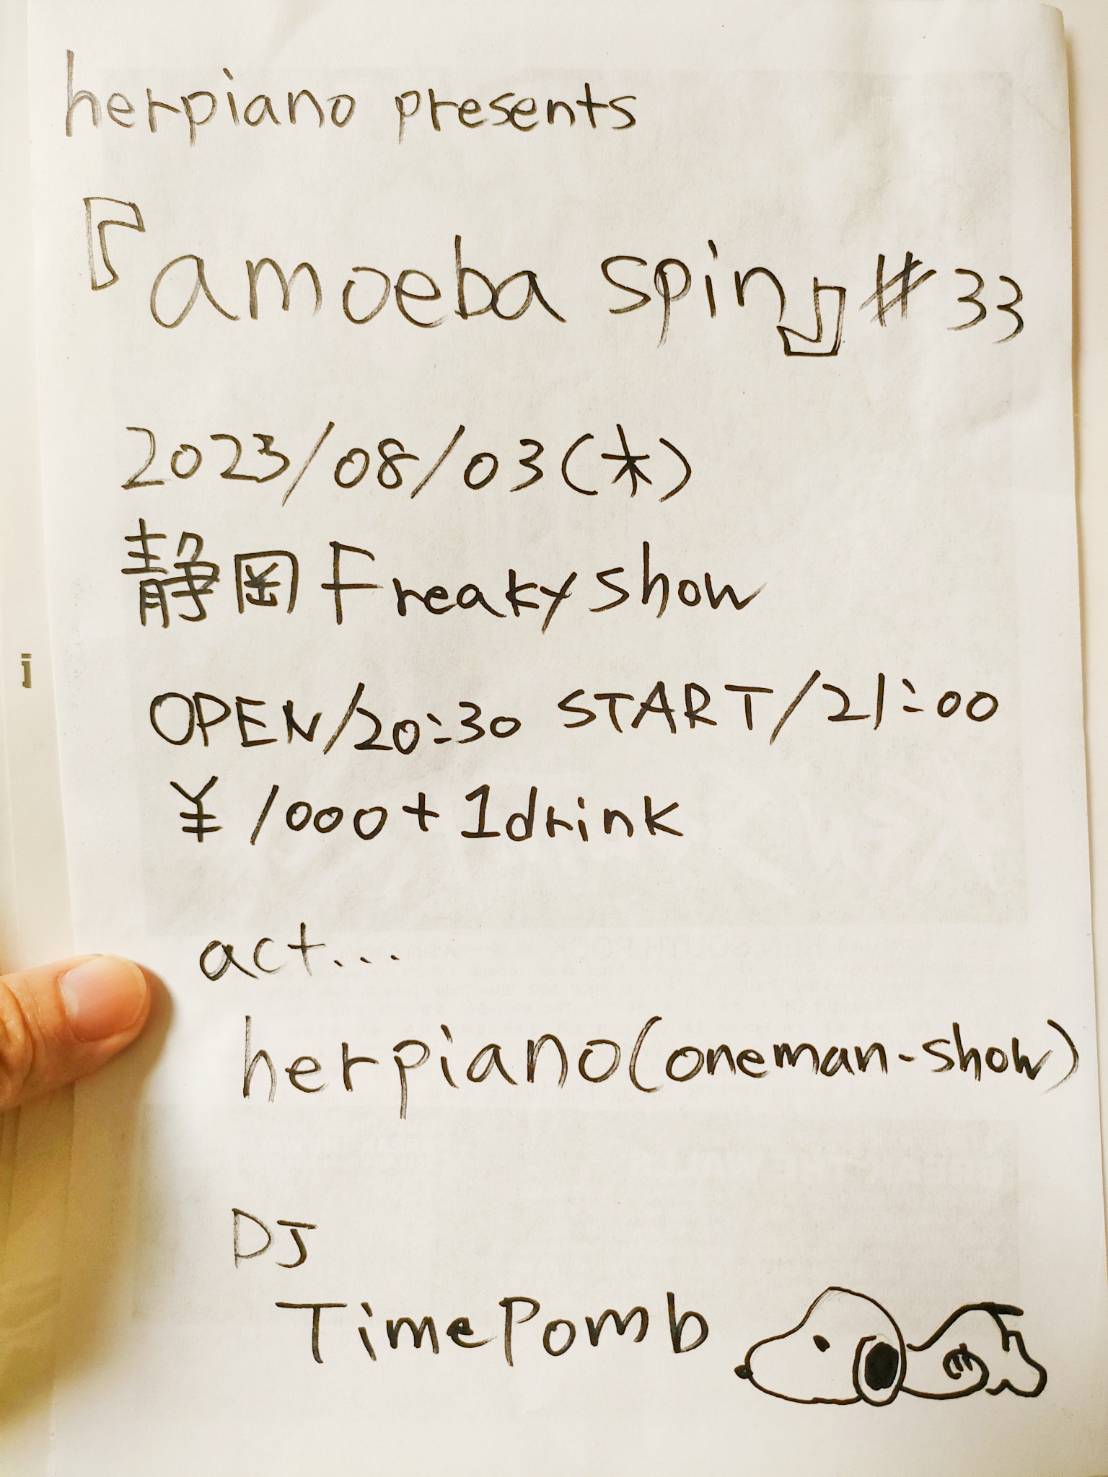 herpiano presents
『amoeba spin』#33
2023/08/03(木)
静岡Freakyshow
OPEN/20:30 START/21:00
¥1000+1drink
act...
herpiano(oneman-show)
DJ
TimePomb